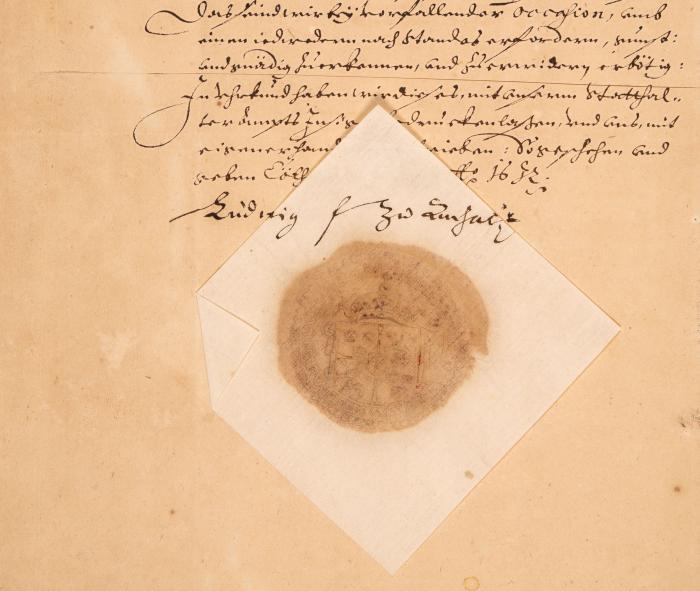 Das seind wir bey vorfallender occasion, umb
einen iedwedern nach Standes erfordern, gunst:
und gnädig zuerkennen, und zuerwidern erbötig:
In Uhrkund haben wir dieses, mit unserm Statthal-
ter Ampts druckenlaßen, und uns, mit
eigener hand: So geschehen und
geben Cöth 16
Ludwig f zu Anhalt